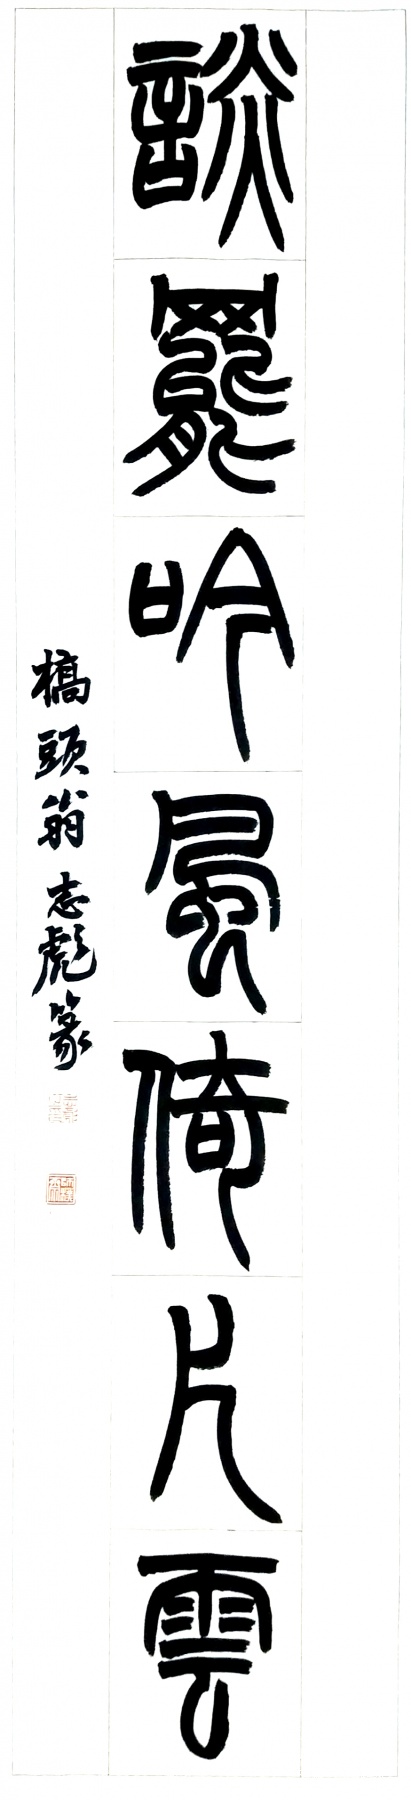 談罷吟風倚片雲
橋頭翁志彪篆